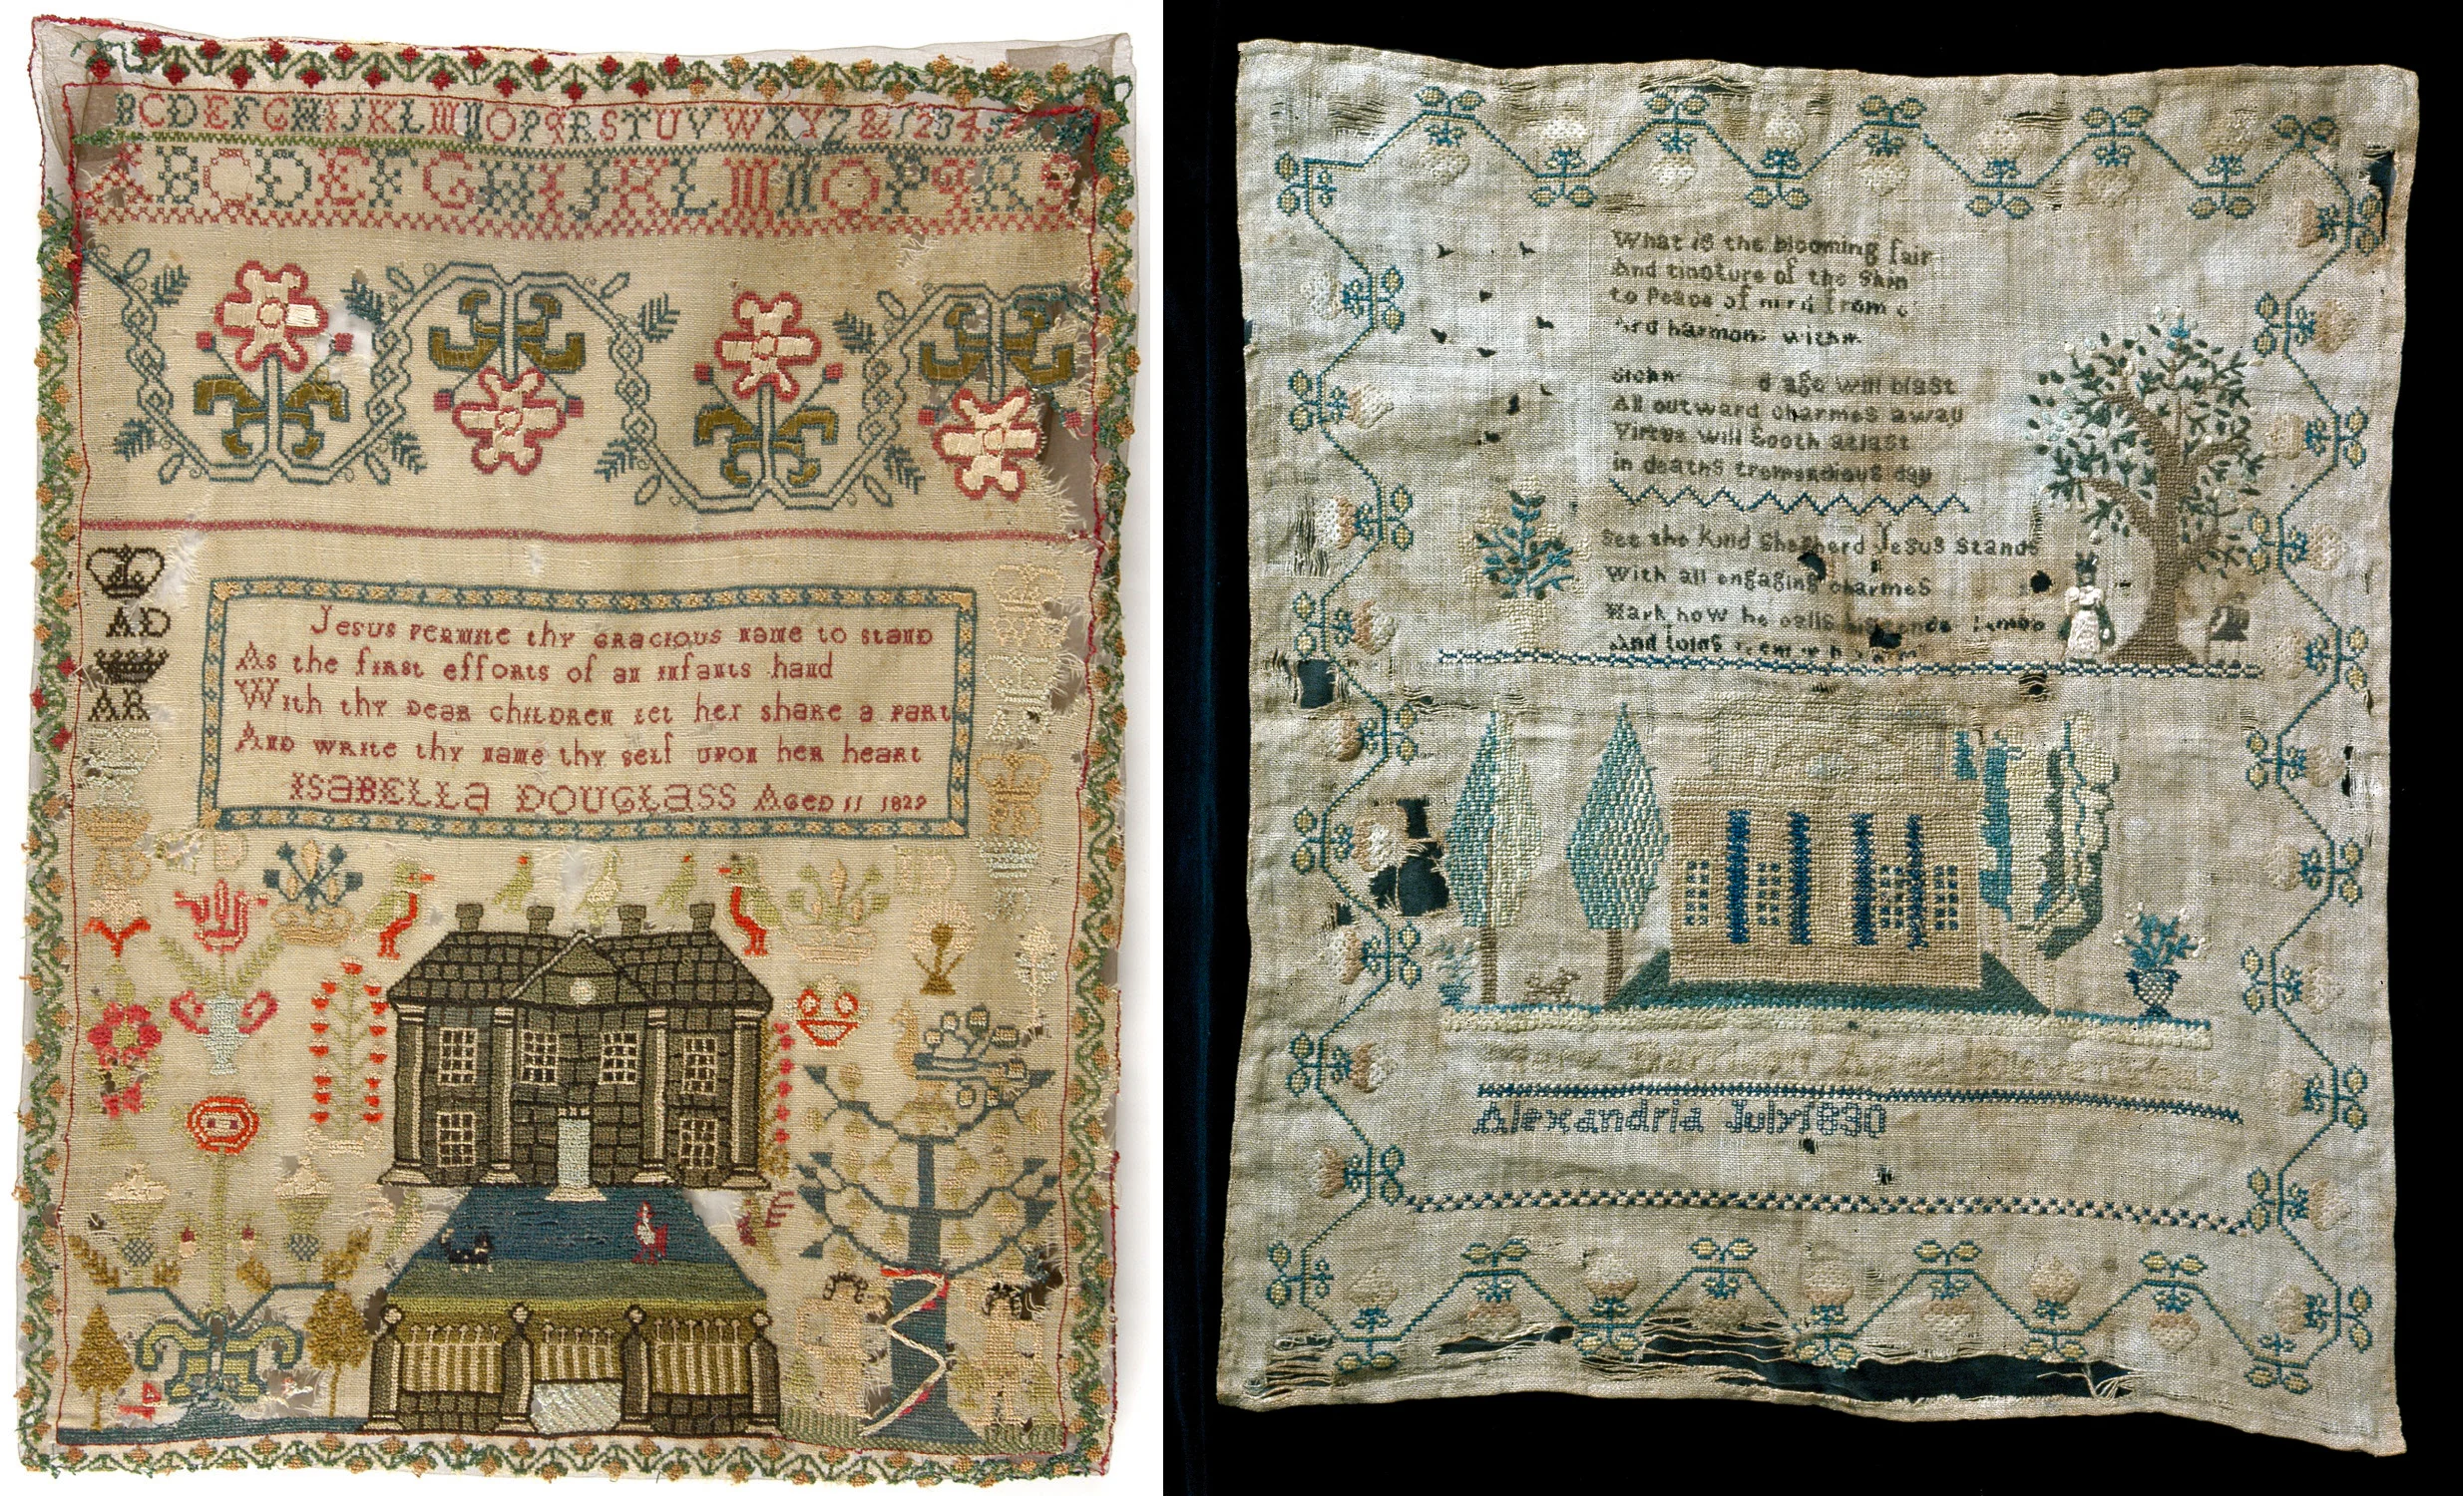 BCDEFGHIJKLMNOPQRSTUVWXYZ&12345
ABCDEFGHIJKLMNOPQRS
AD
AR
AD
Jesus permite thy gracious name to stand
As the first efforts of an infants hand
With thy Dear children let her share a part
And write thy name thy self upon her heart
ISABELLA DOUGLASS Aged 11 1829
D
D
What is the blooming fair
And tincture of the Skin
to Peace of mind from
And harmony within
d age will blast
All outward charmes away
Virtue will Sooth atlast
in deaths tremendious day
See the Kind Shepherd Jesus Stands
With all engaging charmes
Hark how he calls
And
Alexandria July 1830